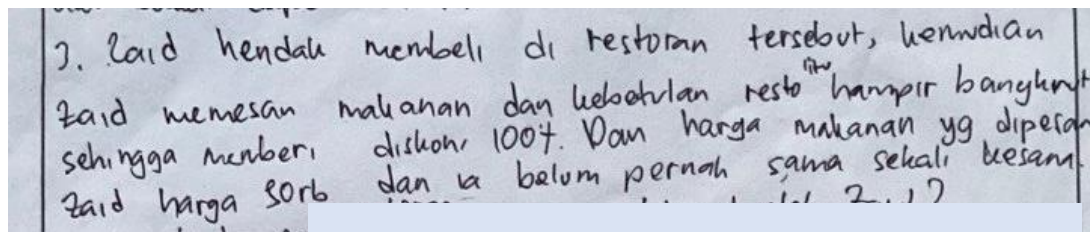 3. Zaid hendak membeli di restoran tersebut, kemudian
Zaid memesan makanan dan kebetulan resto itu hampir bangkrut
sehingga memberi diskon 100%. Dan harga makanan yg dipesan
Zaid harga 50rb dan ia belum pernah sama sekali kesana